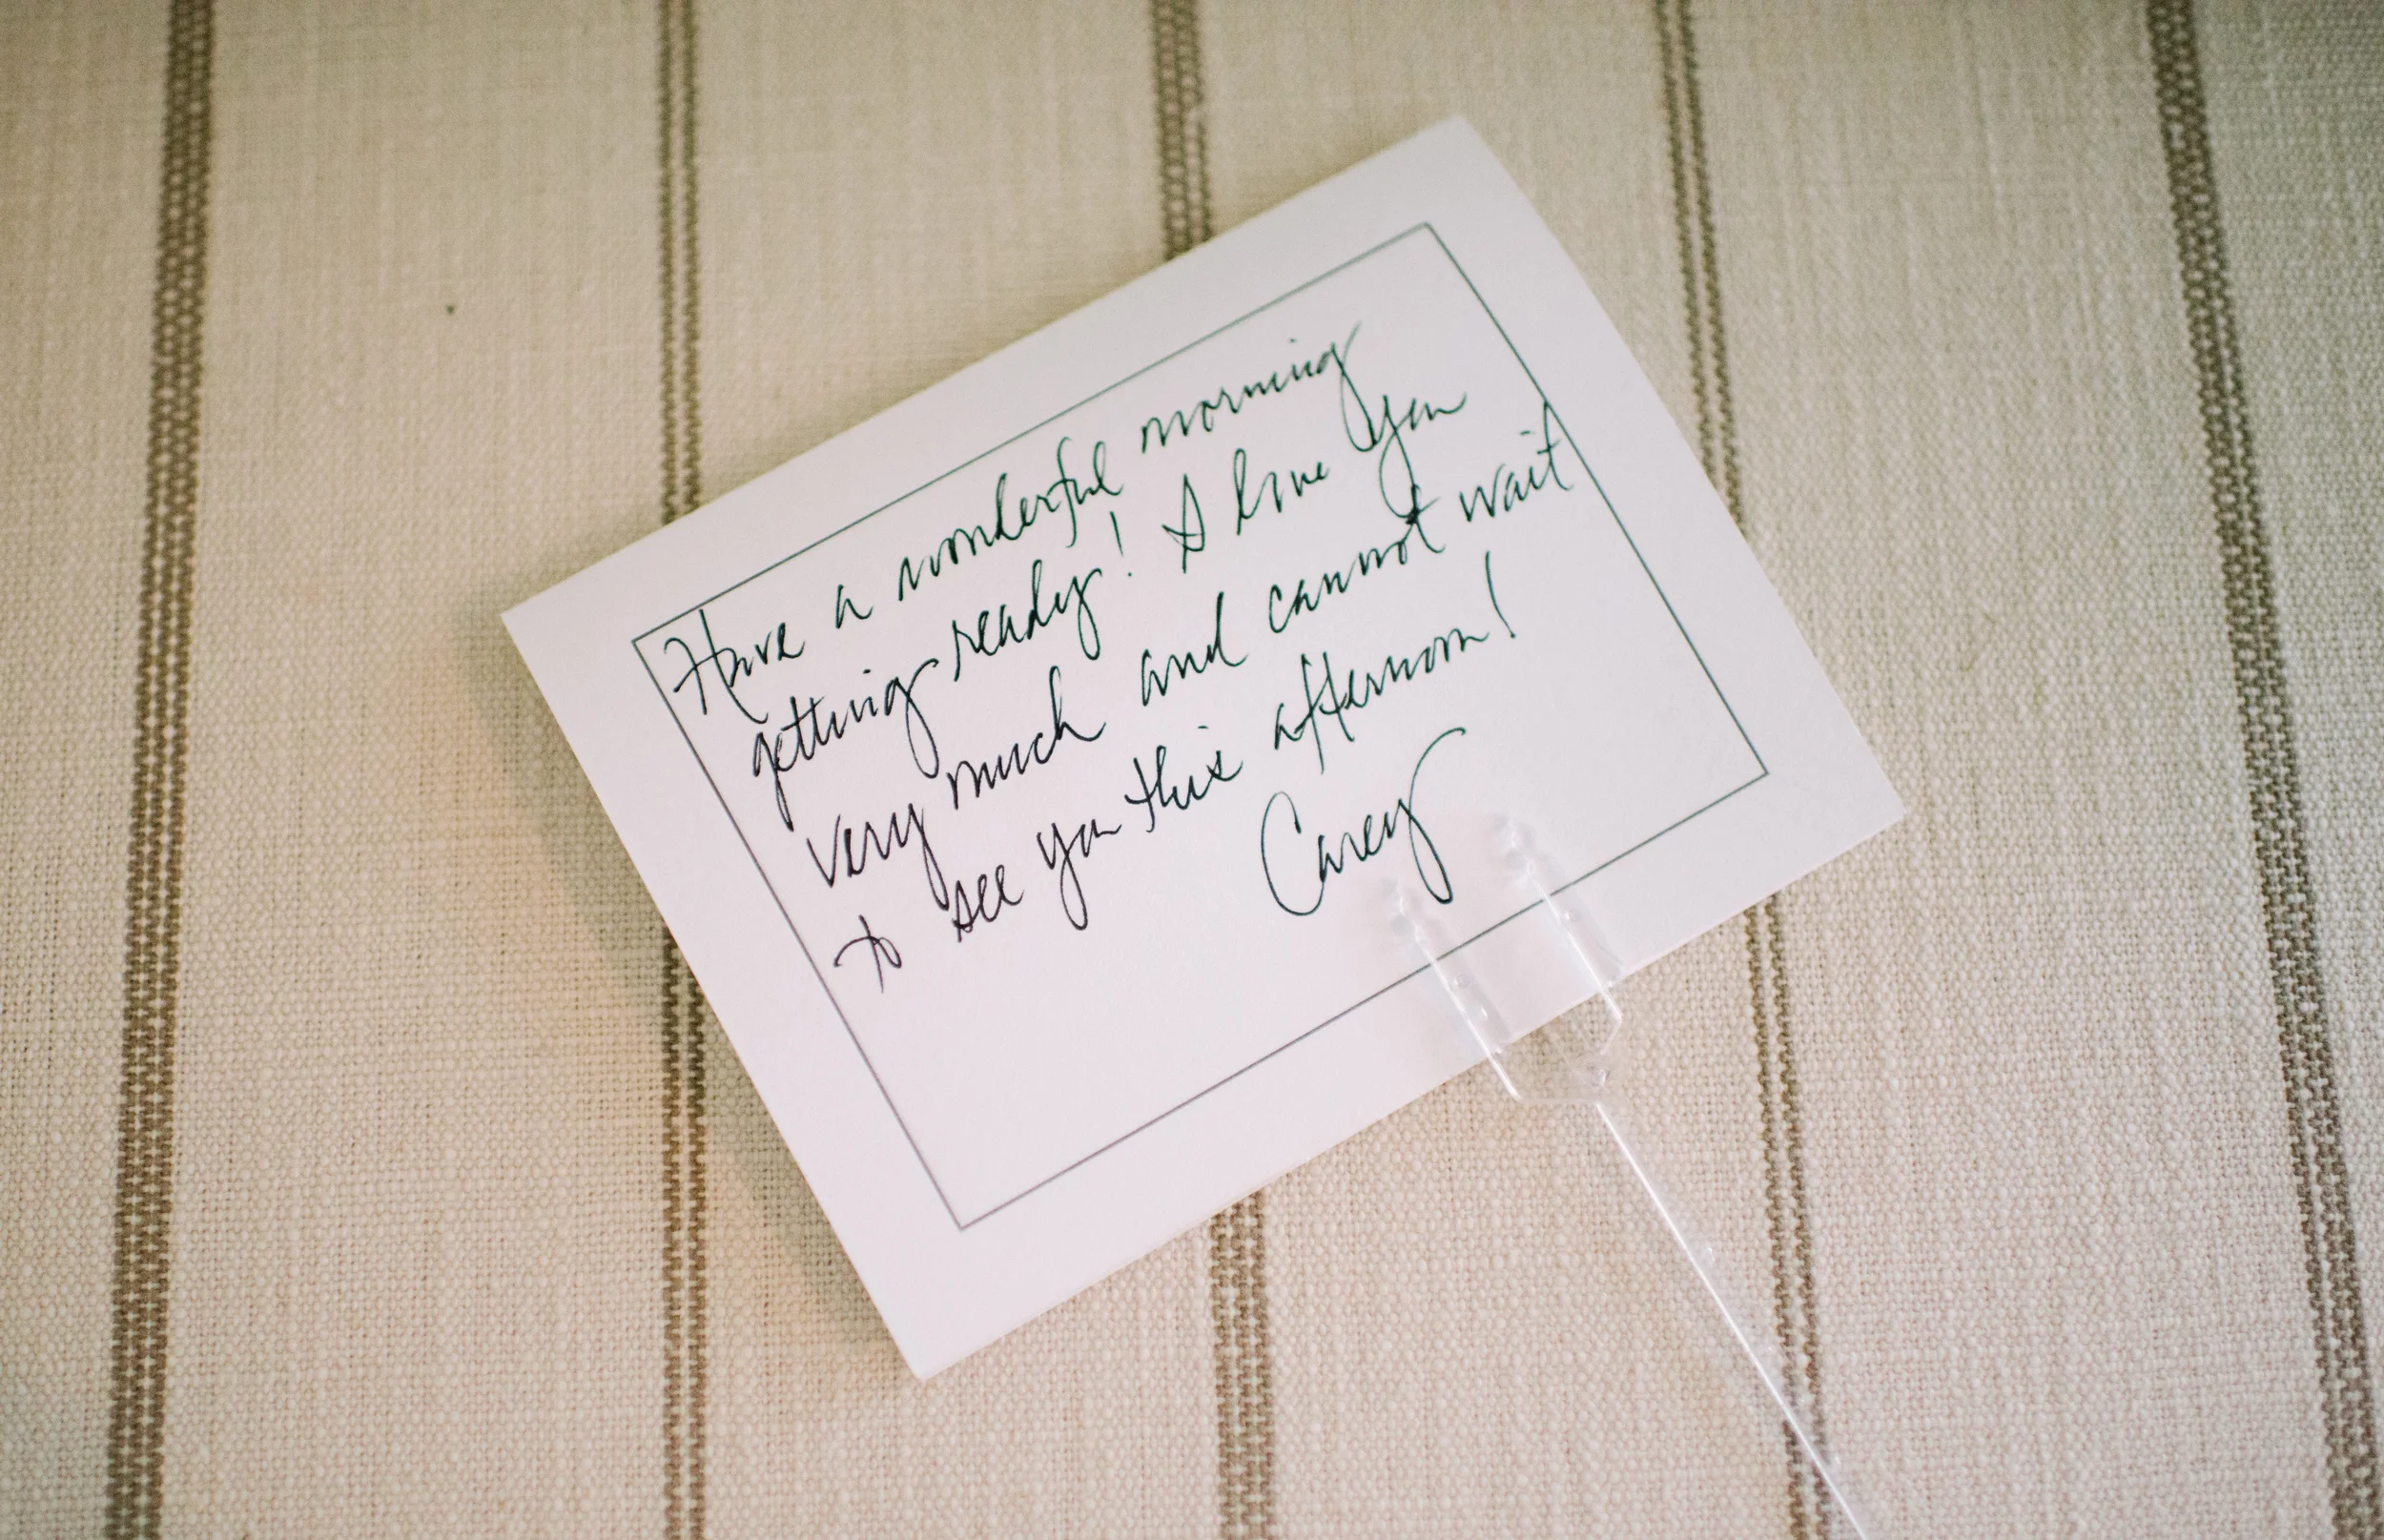 Have a wonderful morning
getting ready! I love you
very much and cannot wait
to see you this afternoon!
Carey